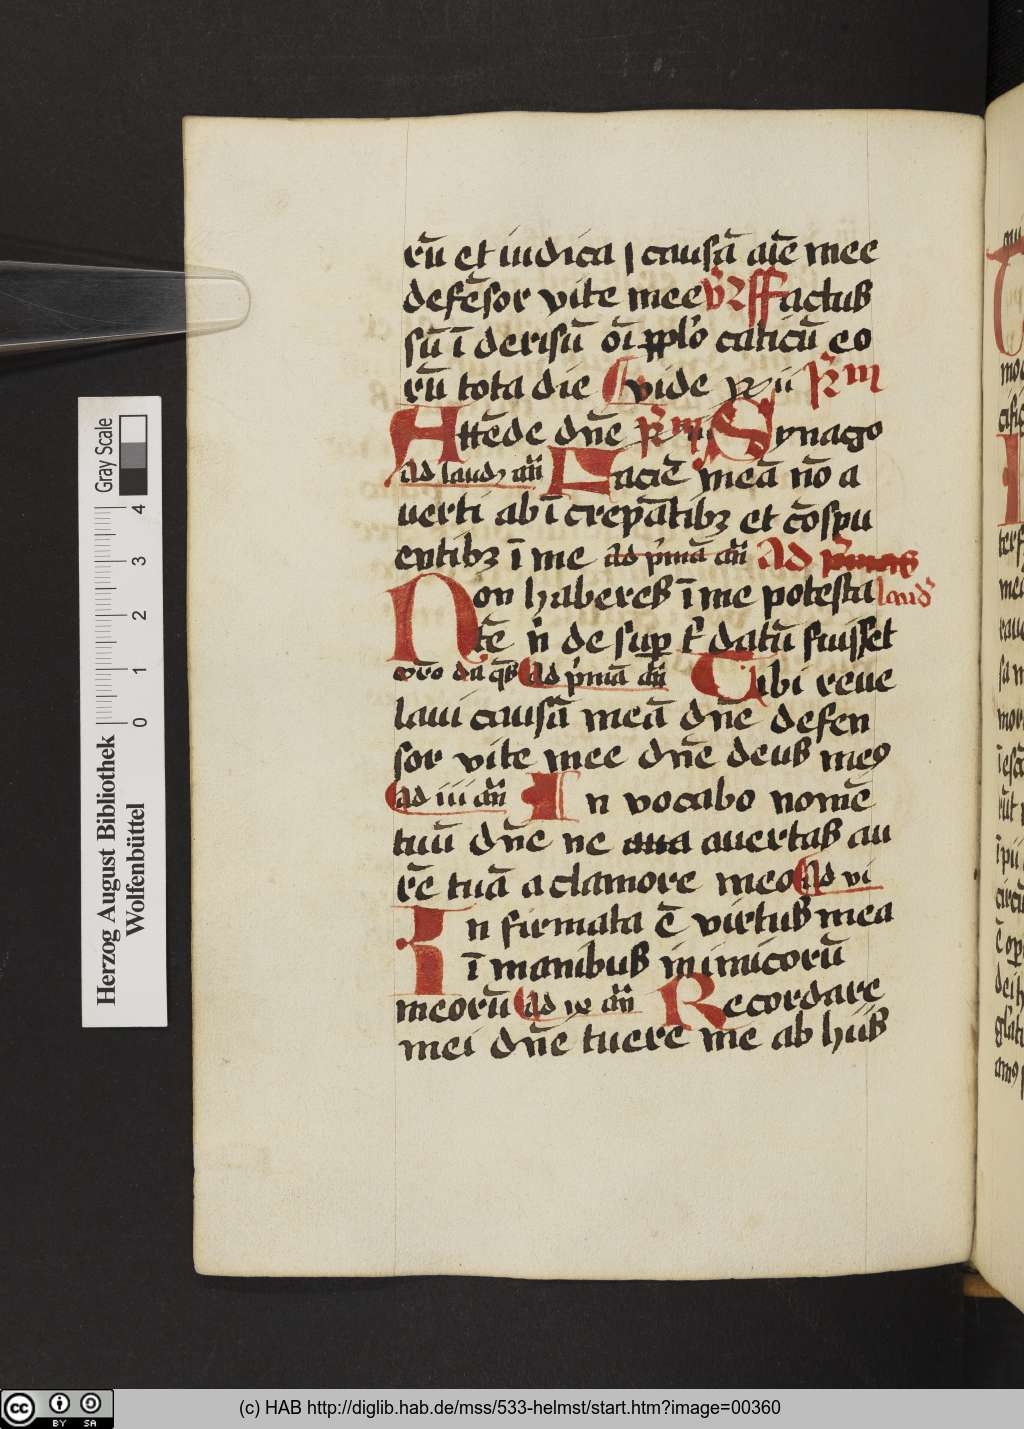 rū et iudica causā aīe mee
defēsor vite mee v̄R ffactus
sū ī derisū oī pplo caticū eo
rū tota die vide R̄m
Attēde dn̄e R̄m Synago
ad laud an̄ Faciē meā nō a
uerti ab īcrepātibꝫ et cōspu
entibꝫ ī me ad p̄mā an̄ Ad p̄mas
Non haberes ī me potesta laud
tē n̄ de sup t datū fuisset
oro dn qs ad p̄mā an̄ Tibi reue
laui causā meā dn̄e defen
sor vite mee dn̄e deus meꝯ
ad iii an̄ In vocabo nomē
tuū dn̄e ne aua auertas au
rē tuā a clamore meo Ad vi
In firmata ē virtus mea
ī manibus in imicorū
meorū Ad ix an̄ Recordare
mei dn̄e tuere me ab hiis
Gray Scale
0 1 2 3 4
Herzog August Bibliothek
Wolfenbüttel
cc BY SA
(c) HAB http://diglib.hab.de/mss/533-helmst/start.htm?image=00360